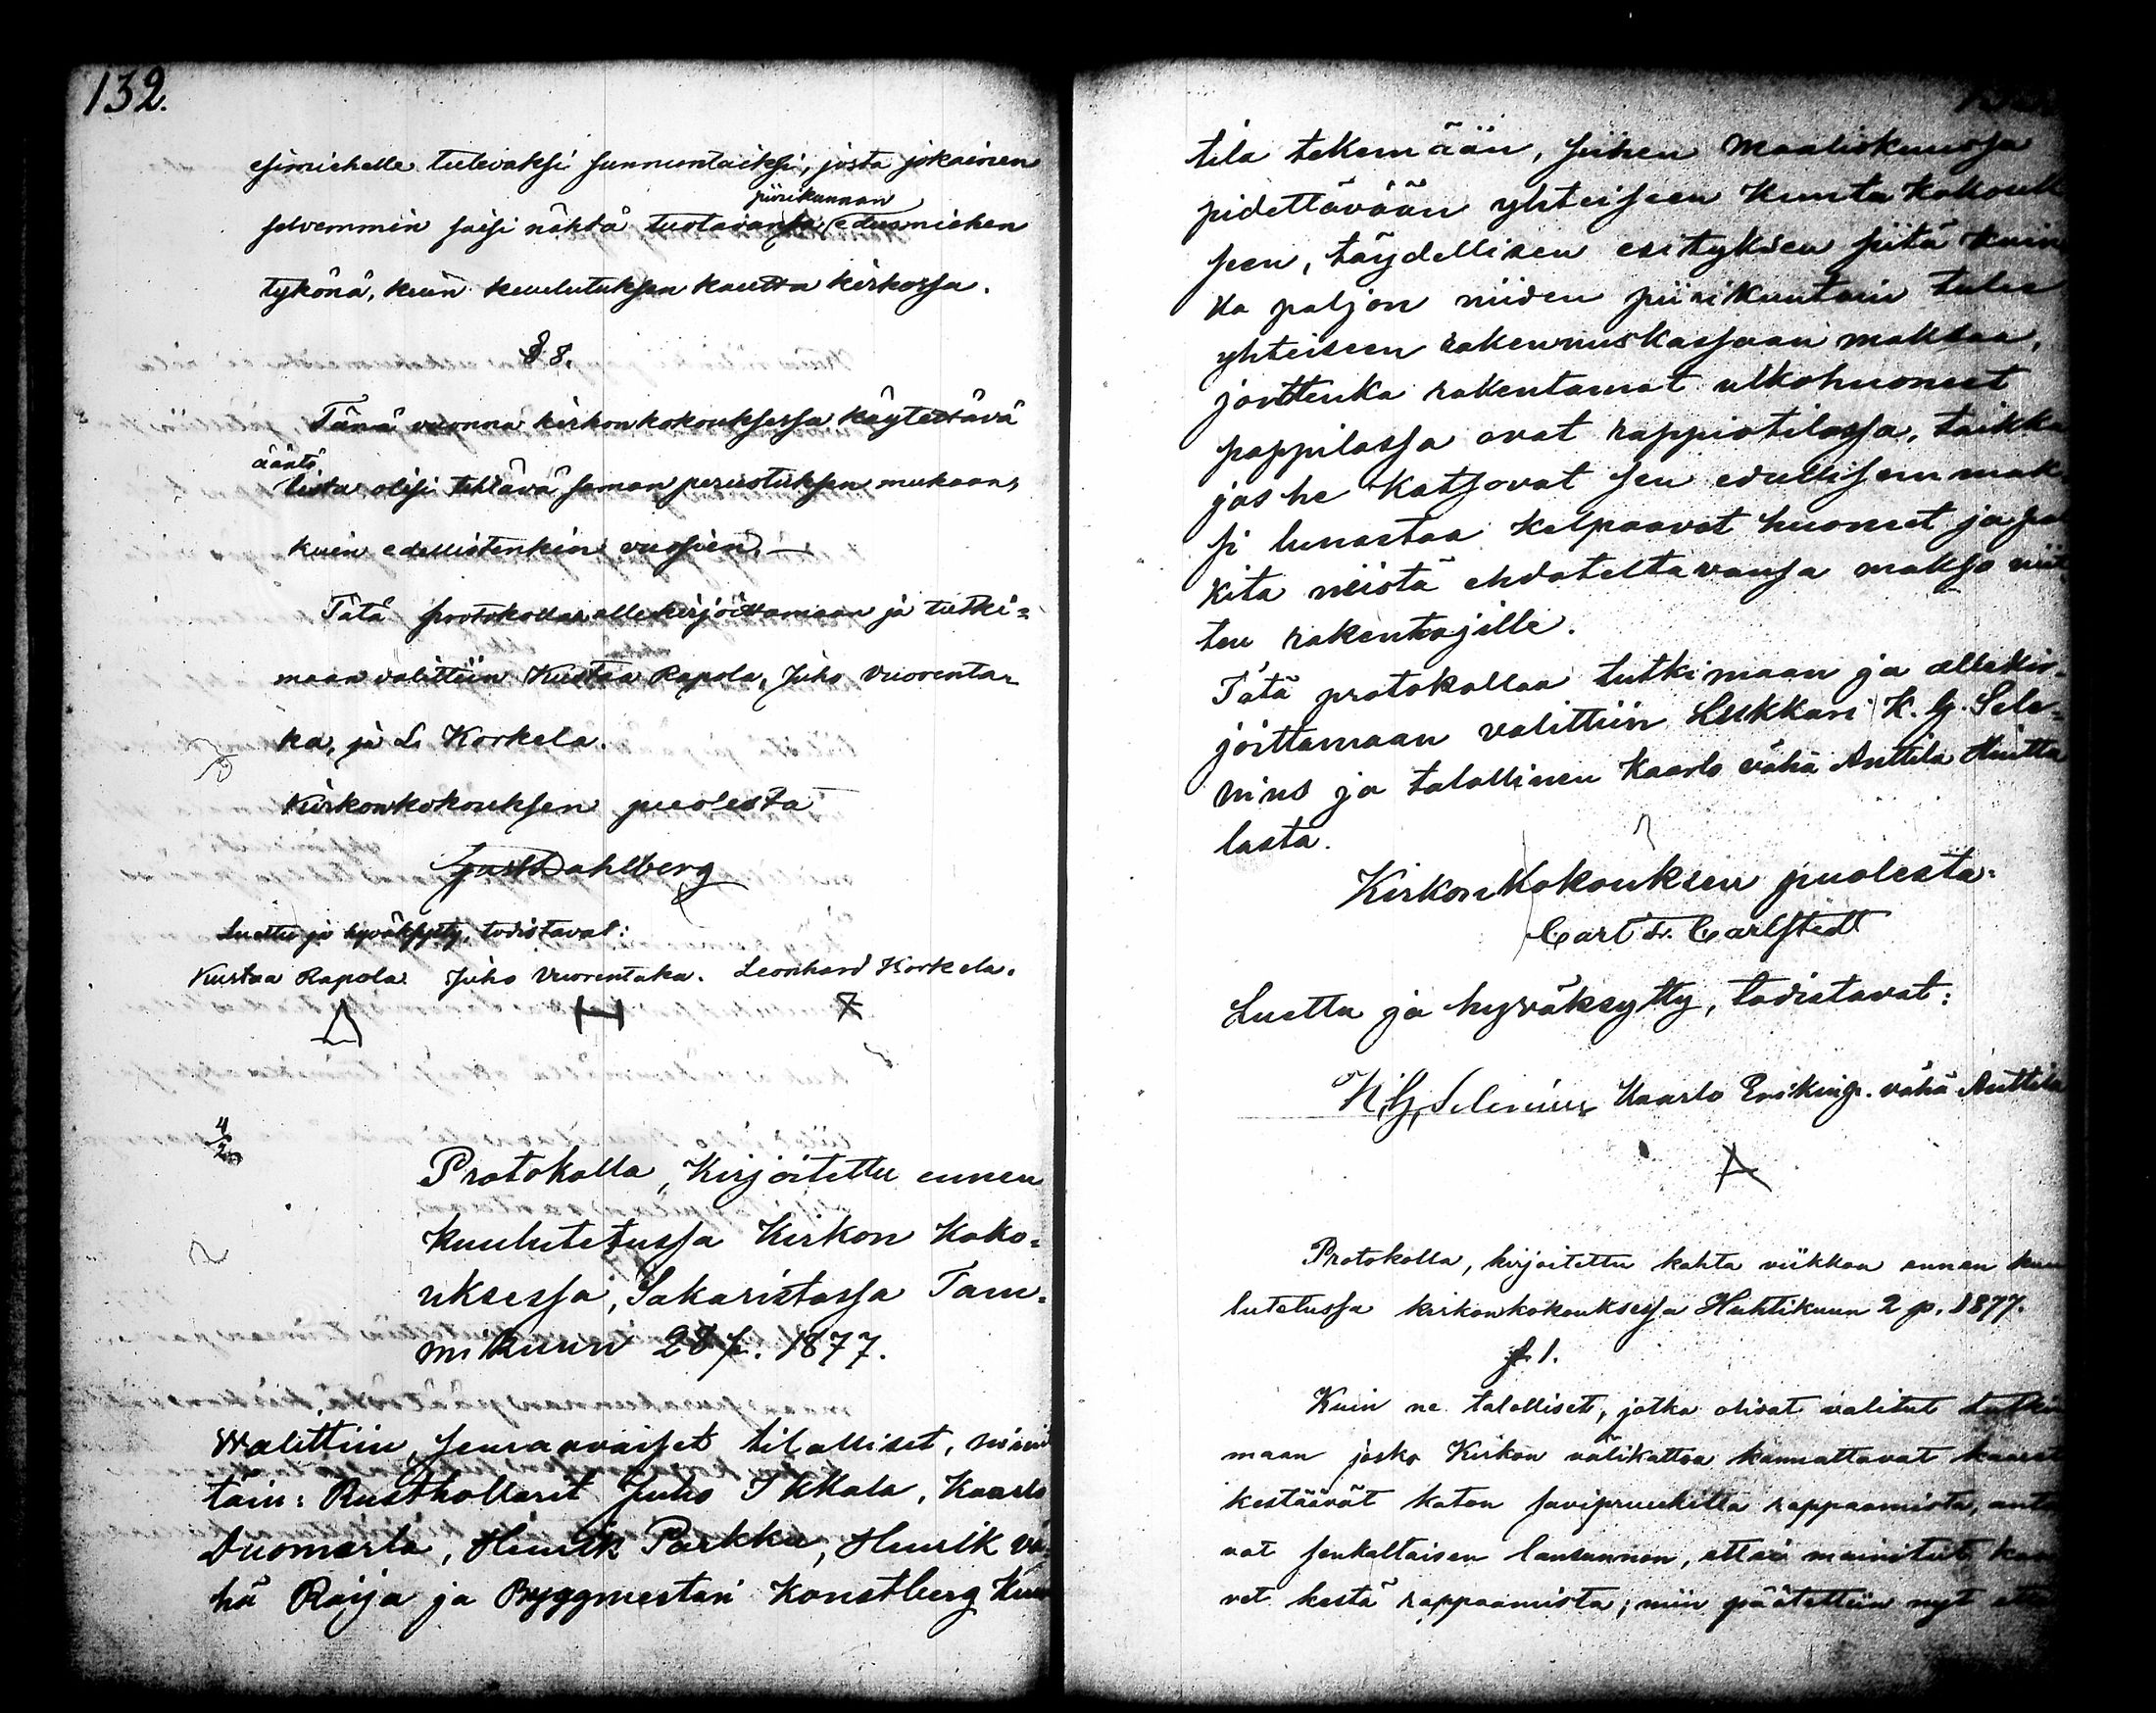 132.
esimiehelle tulevaksi sunnuntaiksi, josta jokainen
piirikunnan
selvemmin saisi nähdä tuotavansa edusmiehen
tykönä, kuin kuulutuksen kautta kirkossa.
§ 8.
Tänä vuonna kirkonkokouksessa käytettävä
ääntö
lista olisi tehtävä saman perustuksen mukaan,
kuin edellistenkin vuosien. —
Tätä protokollaa allekirjoittamaan ja tutki=
maan valittiin Kustaa Rapola, Juho Vuorenta=
ka, ja L. Korkela.
Kirkonkokouksen puolesta
Gust Dahlberg
Luettu ja hyväksytty, todistavat:
Kustaa Rapola. Juho Vuorentaka. Leonhard Korkela.
4/2
Protokolla, Kirjoitettu ennen
kuulutetussa Kirkon Koko=
uksessa, Sakaristassa Tam=
mikuun 28 p. 1877.
Walittiin, seuraavaiset tilalliset, nimit
täin: Rusthollarit Juho Ikkala, Kaarlo
Duomarla, Henrik Parkku, Henrik vä=
hä Raija ja Byggmestari Konstberg
tila tekemään, siihen Maaliskuussa
pidettävään yhteiseen Kunta Kokouk
seen, täydellisen esityksen siitä kuin
ka paljon niiden piirikuntain tulee
yhteiseen rakennuskassaan maksaa,
jonttenka rakentamat ulkohuoneet
pappilassa ovat rappiotilassa, taikka
jos he katsovat sen edullisemmak
si lunastaa kelpaavat huoneet ja
kita niistä ehdoteltavansa makso niit
ten rakentajille.
Tätä protokollaa tutkimaan ja allekir=
joittamaan valittiin Lukkari K. G. Sele=
nius ja talollinen Kaarlo vähä Anttila Hintta
lasta.
Kirkon Kokouksen puolesta:
Carl Fr. Carlstedt
Luettu ja hyväksytty, todistavat:
K. G. Selenius Kaarlo Erikinp. vähä Anttila
Protokolla, kirjoitettu kahta viikkoa ennen kuu
lutetussa kirkonkokouksessa Huhtikuun 2 p. 1877.
§ 1.
Kuin ne talolliset, jotka olivat valitut tutki
maan josko Kirkon välikattoa kannattavat kaaret
kestäävät katon saviprunkilla rappaamista, anto
vat senkaltaisen lausunnon, ettei mainitut kaa
ret kestä rappaamista; niin päätettiin nyt että